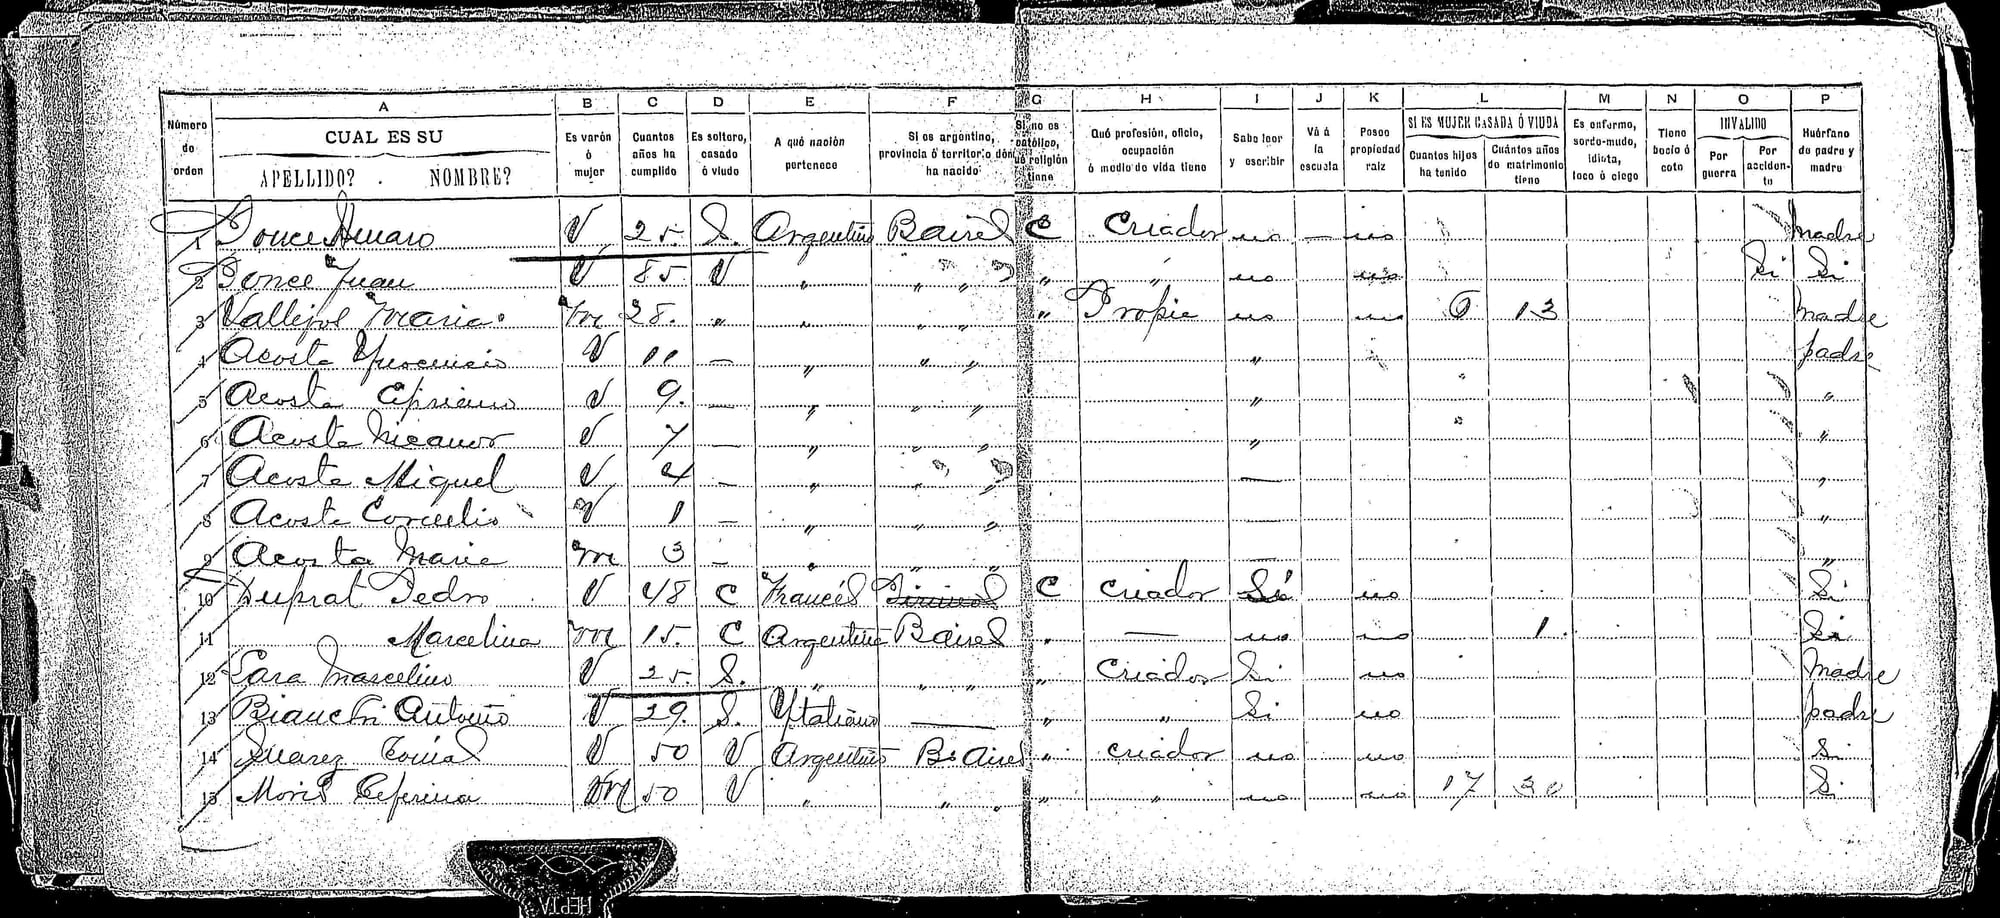 A B C D E F G H I J K L M N O P
Número de orden
CUAL ES SU
APELLIDO? . NOMBRE?
Es varón ó mujer
Cuantos años ha cumplido
Es soltero, casado ó viudo
A qué nación pertenece
Si es argentino, provincia ó territorio dón ha nacido
Si no es católico, qué religión tiene
Qué profesión, oficio, ocupación ó medio de vida tiene
Sabe leer y escribir
Vá á la escuela
Posee propiedad raiz
SI ES MUJER CASADA Ó VIUDA
Cuantos hijos ha tenido
Cuántos años de matrimonio tiene
Es enfermo, sordo-mudo, idiota, loco ó ciego
Tiene bocio ó coto
INVALIDO
Por guerra
Por acciden-te
Huérfano de padre y madre
1 Ponce Amaro V 25. S. Argentino Baires C Criador no — no madre
2 Ponce Juan V 85 V " " " " " no no Si Si
3 Vallejos Maria. m 28. " " " " " Propie no no 6 13 madre
4 Acosta V 11 — " " " " padre
5 Acosta Cipriano V 9. — " " " " "
6 Acosta Nicanor V 7 — " " " " "
7 Acosta Miguel V 4 — " " " — "
8 Acosta Cornelio V 1 — " " — "
9 Acosta Maria m 3 — " " " — "
10 Duprat Pedro V 48 C Francés C Criador Sí no Si
11 Marcelina m 15. C Argentina Baires " — no no 1. Si
12 Lara Marcelino V 25. S. " " " " Criador Si no Madre
13 Bianchi Antonio V 29. S. Ytaliano — " " Si no padre
14 Suarez Tomás V 50 V Argentino Bs Aires " Criador no no Si
15 Moris Ceferina m 50 V " " " " " no no 17 30 Si